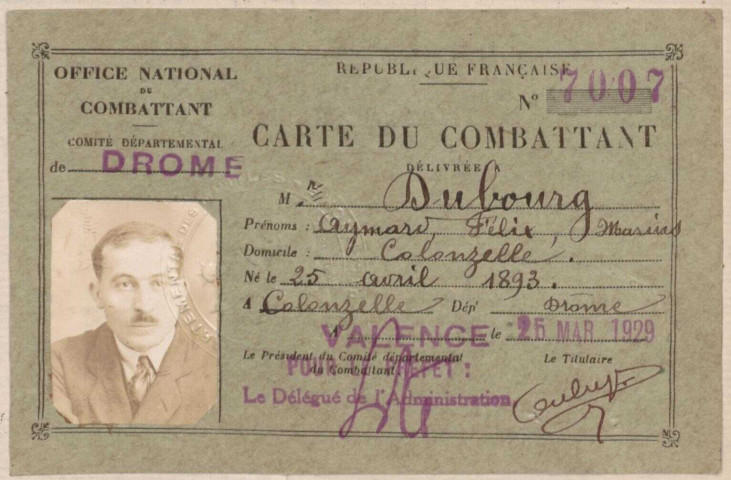 OFFICE NATIONAL
DU
COMBATTANT
COMITÉ DÉPARTEMENTAL
de DROME
RÉPUBLIQUE FRANÇAISE
N° 7007
CARTE DU COMBATTANT
DÉLIVRÉE A
M r Dubourg
Prénoms : Aymard, Félix, Marius
Domicile : Colonzelle.
Né le 25 avril 1893.
A Colonzelle Dépt Drome
A VALENCE le 25 MAR 1929
Le Président du Comité départemental
du Combattant
Le Titulaire
POUR LE PREFET :
Le Délégué de l'Administration